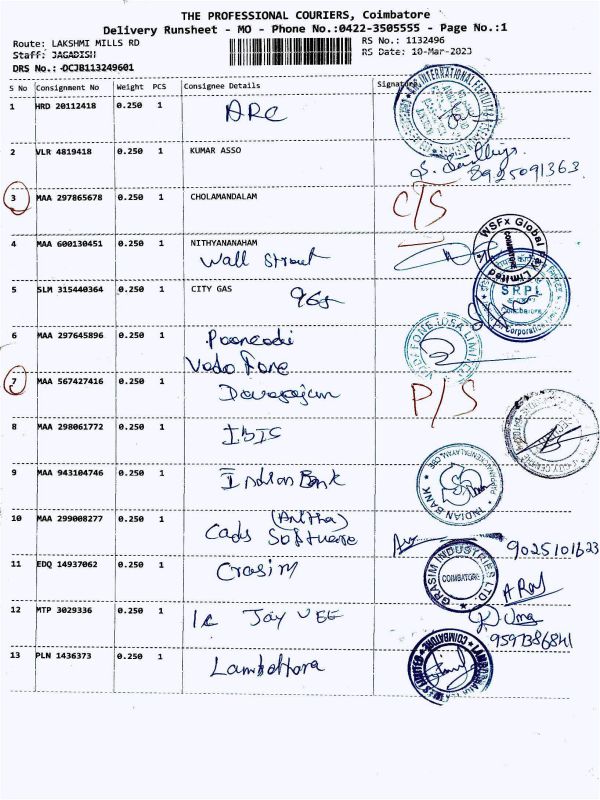 THE PROFESSIONAL COURIERS, Coimbatore
Delivery Runsheet - MO - Phone No.:0422-3505555 - Page No.:1
Route: LAKSHMI MILLS RD
RS No.: 1132496
Staff: JAGADISH
RS Date: 10-Mar-2023
DRS No.: DCJB113249601
S No Consignment No Weight PCS Consignee Details Signature
1 HRD 20112418 0.250 1 ARC
2 VLR 4819418 0.250 1 KUMAR ASSO
8925091363
3 MAA 297865678 0.250 1 CHOLAMANDALAM C/S
4 MAA 600130451 0.250 1 NITHYANANAHAM
Wall Street
WSFx Global Pay Limited
COIMBATORE
5 SLM 315440364 0.250 1 CITY GAS
SRPL
Coimbatore
6 MAA 297645896 0.250 1
Vodo Fone
VODAFONE IDEA LIMITED
7 MAA 567427416 0.250 1 P/S
8 MAA 298061772 0.250 1 IBIS
9 MAA 943104746 0.250 1 Indian Bank
INDIAN BANK
10 MAA 299008277 0.250 1 (Anitha)
Cads Software
9025101623
11 EDQ 14937062 0.250 1 Grasim
GRASIM INDUSTRIES LTD
COIMBATORE
12 MTP 3029336 0.250 1 Jay VEE
Uma
9597386841
13 PLN 1436373 0.250 1
COIMBATORE